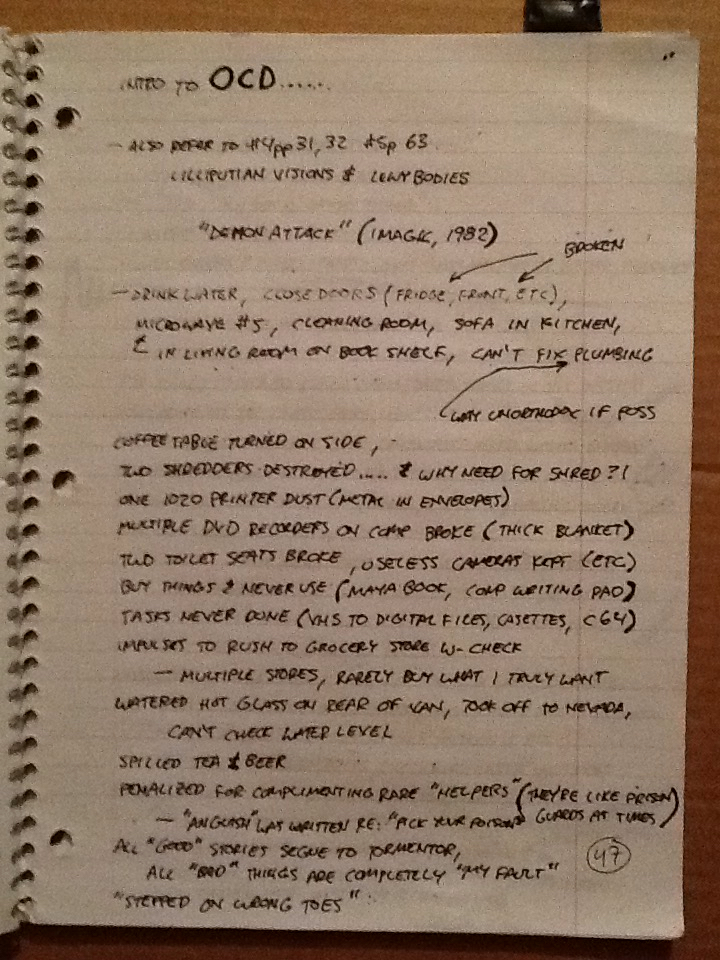 INTRO TO OCD......
- ALSO REFER TO #4pp31,32 #5p 63
LILLIPUTIAN VISIONS & LEWY BODIES
"DEMON ATTACK" (IMAGIC, 1982)
BROKEN
- DRINK WATER, CLOSE DOORS (FRIDGE, FRONT, ETC),
MICROWAVE #5, CLEANING ROOM, SOFA IN KITCHEN,
& IN LIVING ROOM ON BOOK SHELF, CAN'T FIX PLUMBING
WAY UNORTHODOX IF POSS
COFFEE TABLE TURNED ON SIDE,
TWO SHREDDERS DESTROYED..... & WHY NEED FOR SHRED?!
ONE 1020 PRINTER DUST (METAL IN ENVELOPES)
MULTIPLE DVD RECORDERS ON COMP BROKE (THICK BLANKET)
TWO TOILET SEATS BROKE, USELESS CAMERAS KEPT (ETC)
BUY THINGS & NEVER USE (MAYA BOOK, COMP WRITING PAD)
TASKS NEVER DONE (VHS TO DIGITAL FILES, CASETTES, C64)
IMPULSES TO RUSH TO GROCERY STORE W- CHECK
- MULTIPLE STORES, RARELY BUY WHAT I TRULY WANT
WATERED HOT GLASS ON REAR OF VAN, TOOK OFF TO NEVADA,
CAN'T CHECK WATER LEVEL
SPILLED TEA & BEER
PENALIZED FOR COMPLIMENTING RARE "HELPERS" (THEY'RE LIKE PRISON
- "ANGUISH" WAS WRITTEN RE: "PICK YOUR POISON" GUARDS AT TIMES)
ALL "GOOD" STORIES SEGUE TO TORMENTOR,
ALL "BAD" THINGS ARE COMPLETELY "MY FAULT"
47
"STEPPED ON WRONG TOES"